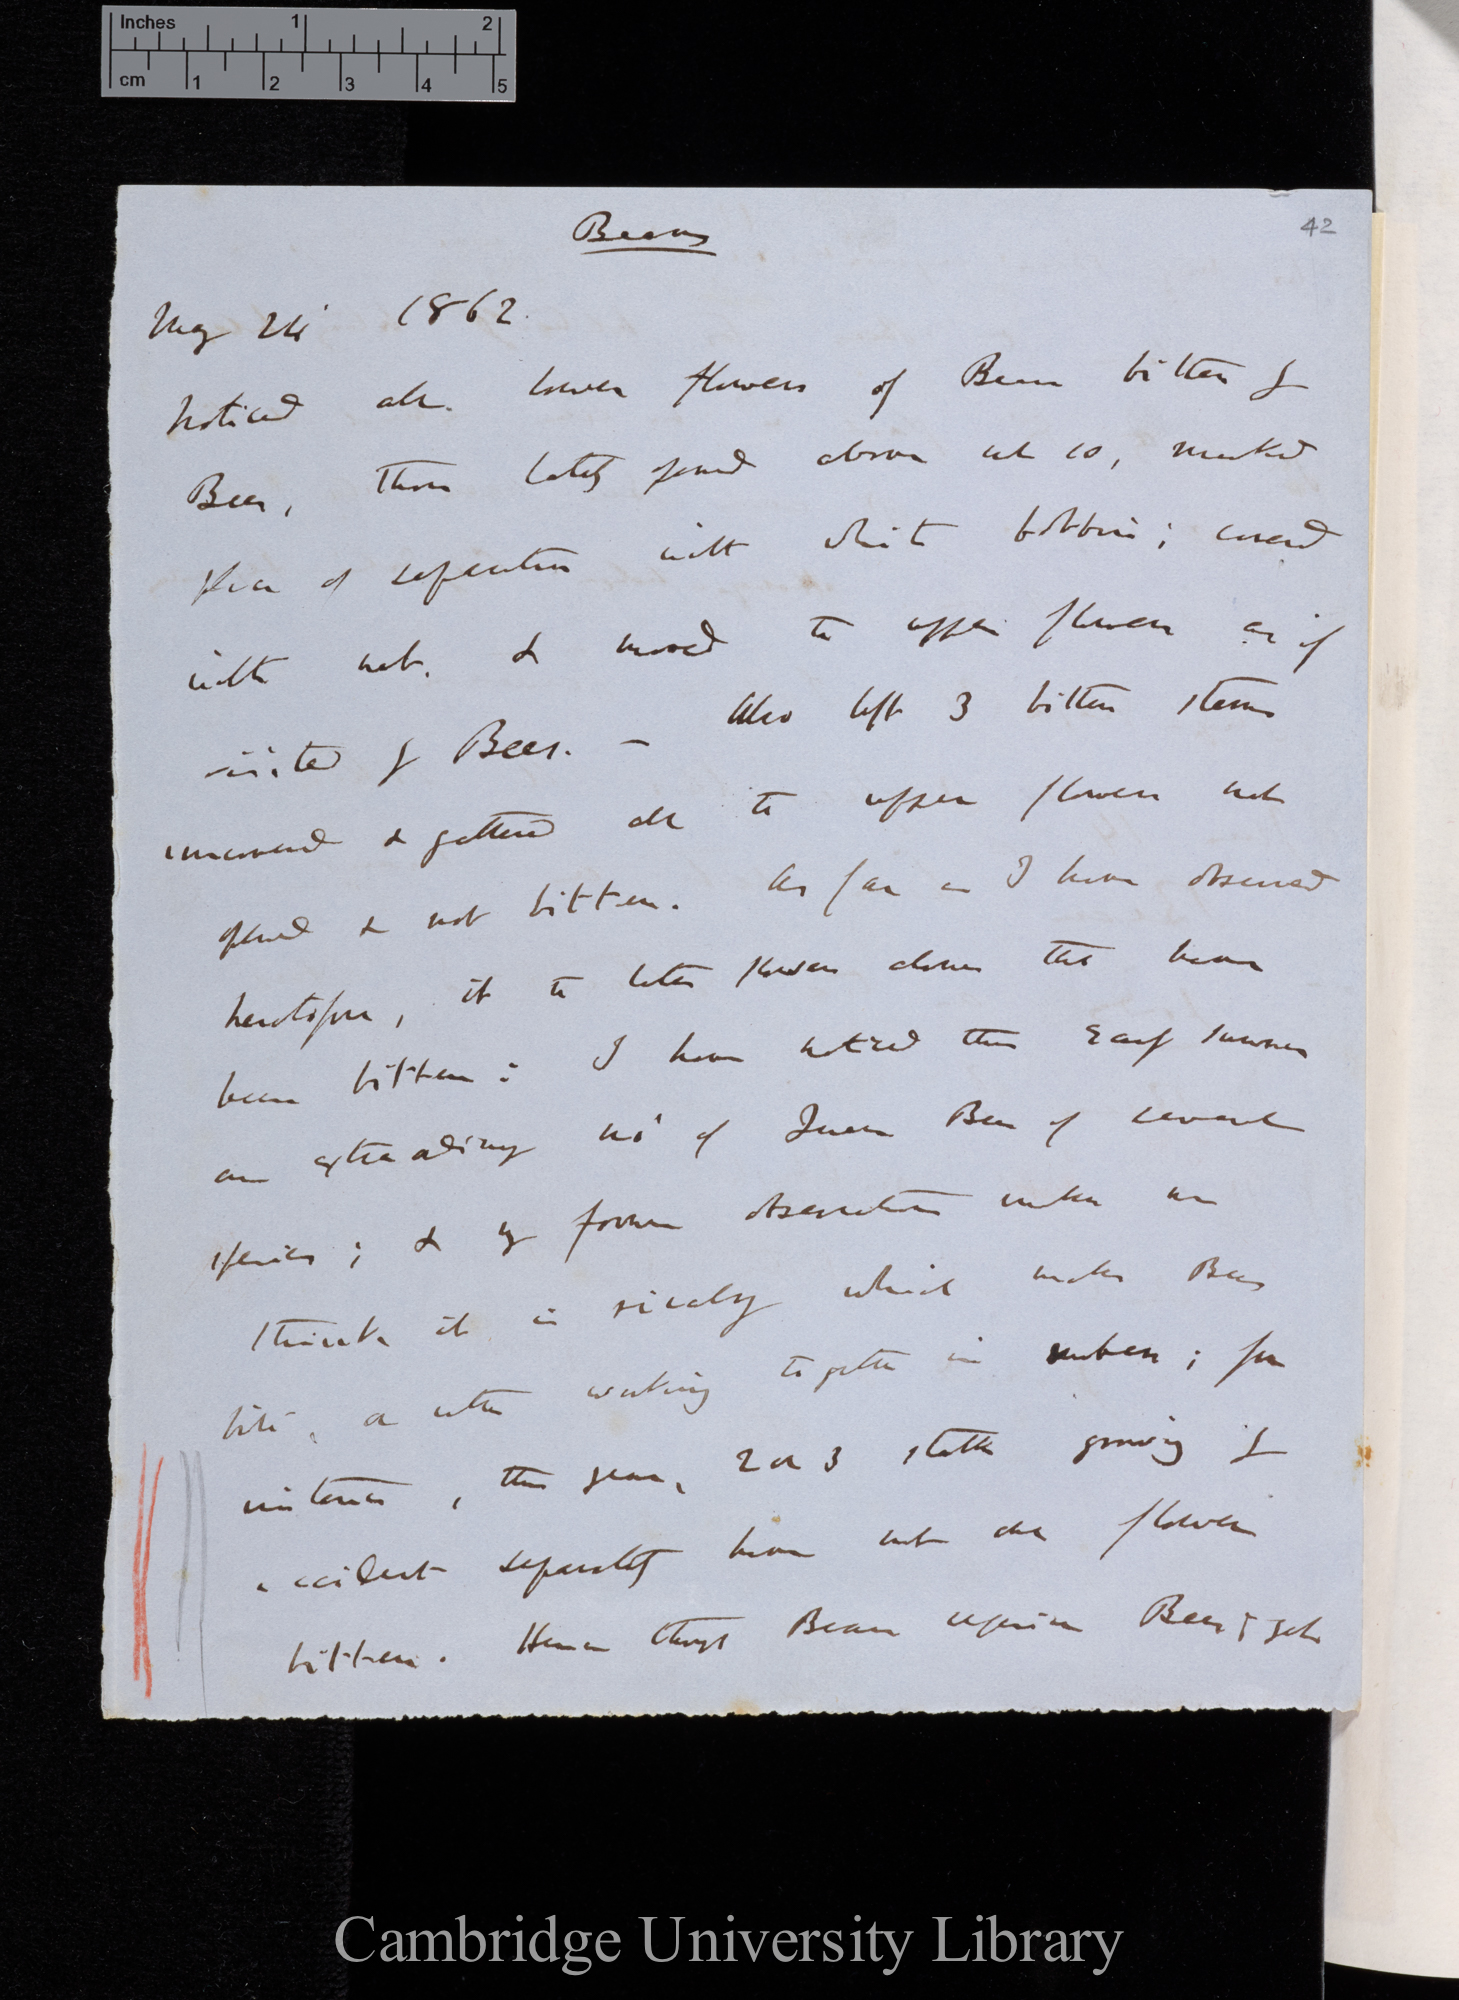 Inches 1 2
cm 1 2 3 4 5
42
Beans
May 24 1862.
Noticed all lower flowers of Bean bitten by
Bees, those lately opened above not so, marked
place of separation with white bobbin; covered
with net. & moved the upper flowers as if
visited by Bees. — Also left 3 bitten stems
uncovered & gathered all the upper flowers not
opened & not bitten. As far as I have observed
heretofore, it is later flowers alone that have
been bitten: I have noticed this early summer
an extraordinary no of Queen Bees of several
species; & my former observations makes me
think it is rivalry which makes Bees
bite, or rather working together in numbers; for
instance, this year, 2 or 3 stalks growing by
accident separately have not one flower
bitten. Hence though Bean requires Bees & gets
Cambridge University Library